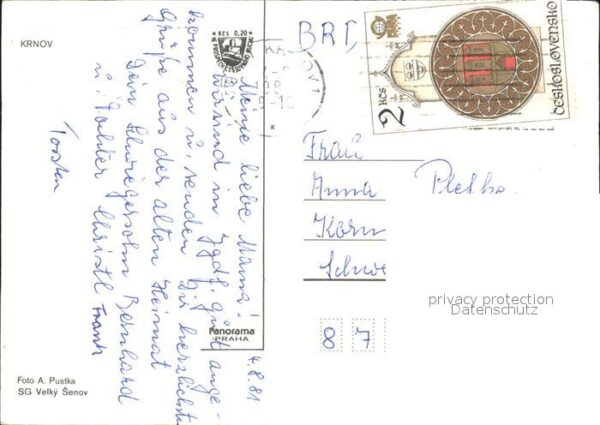 KRNOV
Kčs 0,20
KRNOV 1
BRD,
2 Kčs
ČESKOSLOVENSKO
4.8.81
Meine liebe Mama!
Wir sind in Jgdf. gut ange-
kommen u. senden Dir herzlichste
Grüße aus der alten Heimat
Dein Schwiegersohn Bernhard
u. Tochter Christl Frank
Torsten
Frau
Anna Pletko
Korn
Schwe
87
Panorama
PRAHA
Foto A. Pustka
SG Velký Šenov
privacy protection
Datenschutz